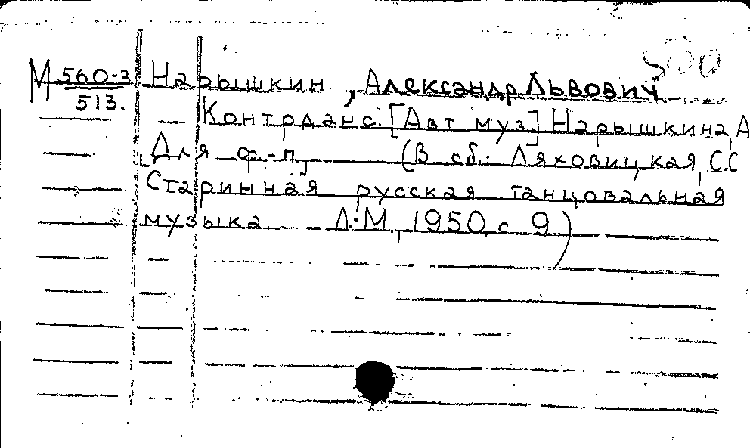 М 560-3 Нарышкин, Александр Львович
513.
Контрданс. [Авт муз] Нарышкина, А
Для ф.-п. (В сб.: Ляховицкая, С.С
Старинная русская танцовальная
музыка Л.-М, 1950, с 9)